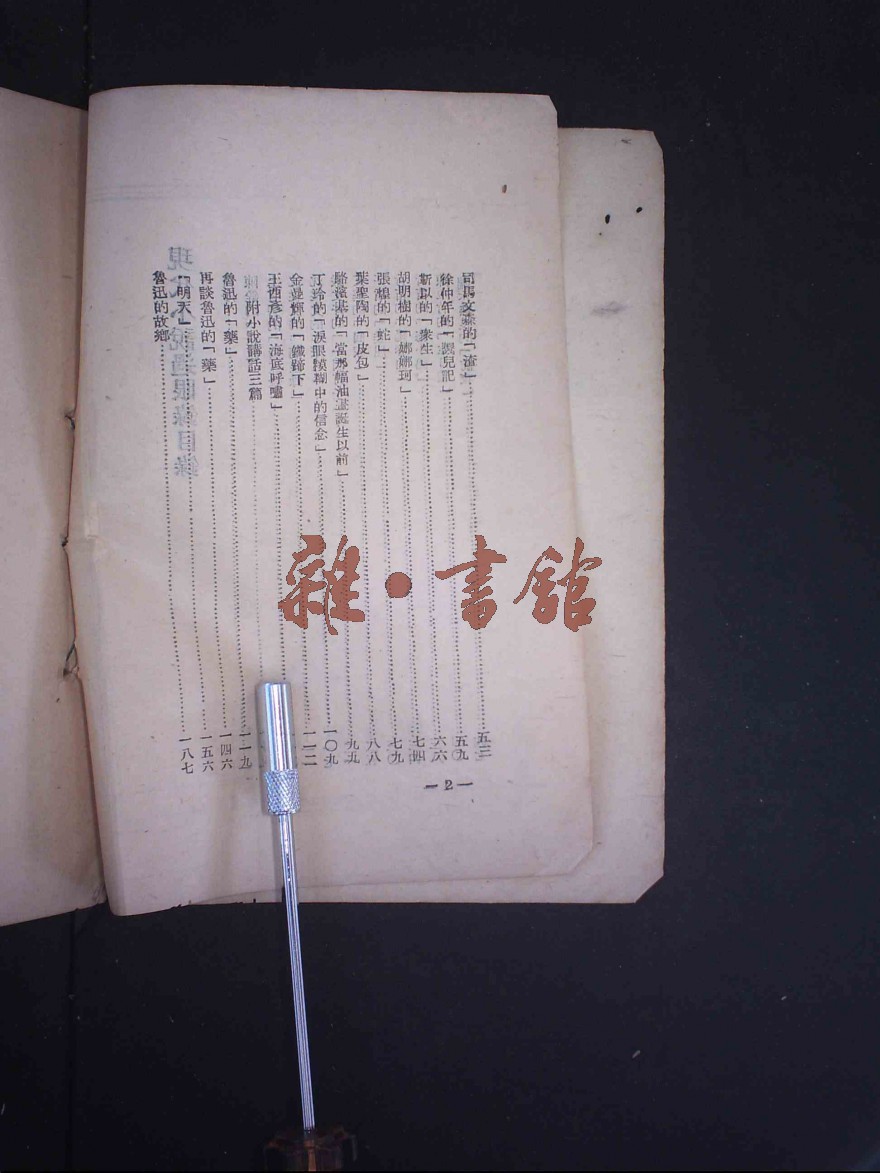 司馬文森的「渣」……五三
徐仲年的「覡兒記」……五九
靳以的「衆生」……六六
胡明樹的「娜娜珂」……七四
張煌的「蛇」……七九
葉聖陶的「皮包」……八八
駱濱基的「當那幅油畫誕生以前」……九五
丁玲的「淚眼模糊中的信念」……一〇九
金曼輝的「鐵蹄下」……一一二
王西彥的「海底呼嘯」……
附小說講話三篇……一一九
魯迅的「藥」……一四六
再談魯迅的「藥」……一五六
「明天」……一八七
魯迅的故鄉……
—2—
雜·書館